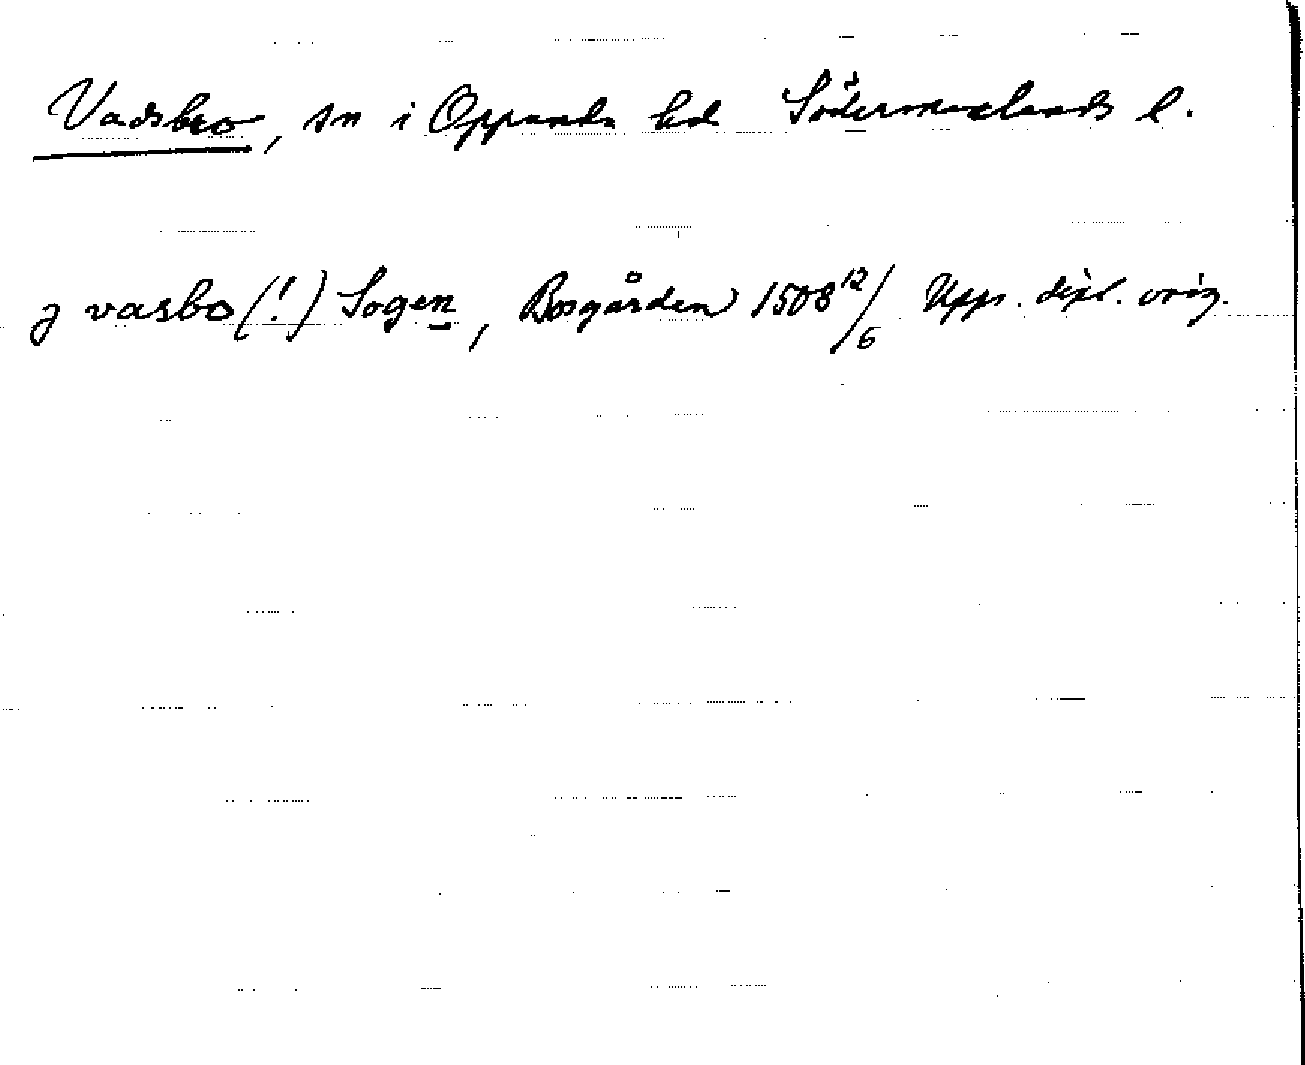 Vadsbro, sn i Oppunda hd Södermanlands l.
j vasbo (!) Sogen, Bosgården 1508 12/6 Upps. dipl. orig.